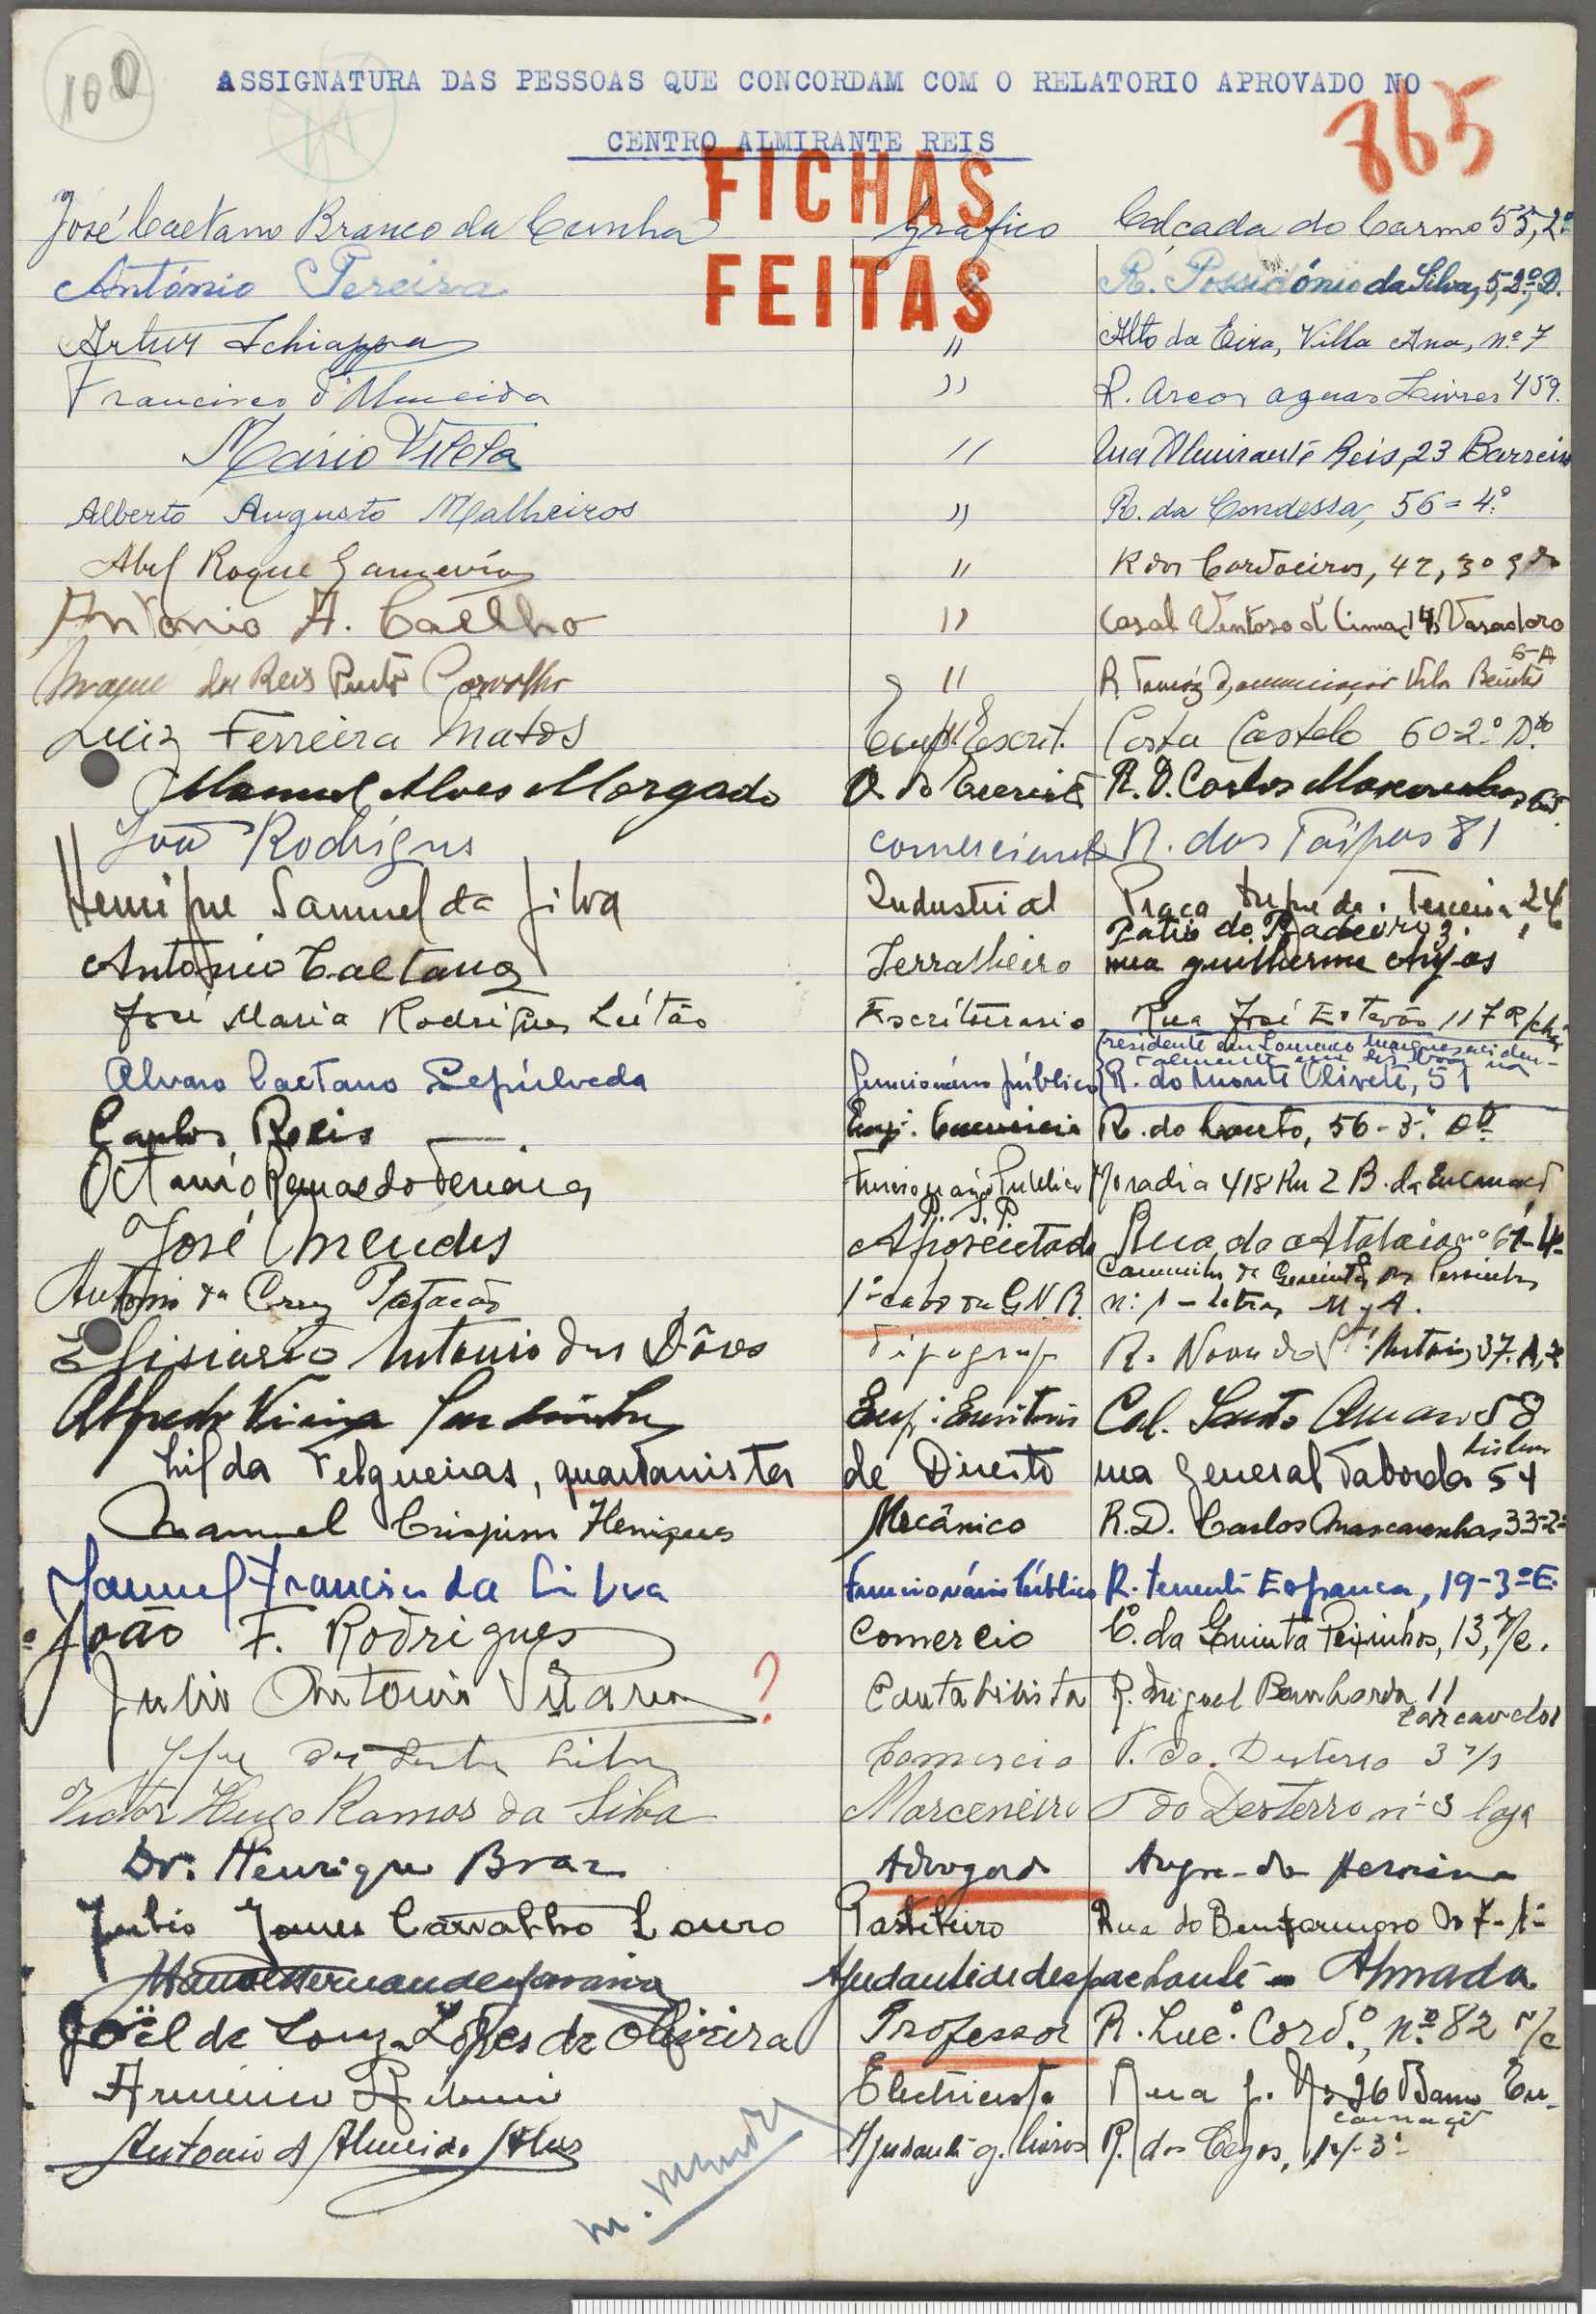 100
ASSIGNATURA DAS PESSOAS QUE CONCORDAM COM O RELATORIO APROVADO NO
CENTRO ALMIRANTE REIS
865
FICHAS
FEITAS
José Caetano Branco da Cunha Gráfico Calçada do Carmo 55, 2º
António Pereira " R. Possidónio da Silva, 5, 2º, D.
Artur Schiappa " Alto da Eira, Villa Ana, nº 7
Francisco d'Almeida " R. Arcos aguas Livres 459.
Mário Vilela " Rua Almirante Reis, 23 Barreiro
Alberto Augusto Malheiros " R. da Condessa, 56 = 4º
Abel Roque " R dos Cordoeiros, 42, 3º
António A. Coelho " Casal Ventoso d Cima, 14, Vasadoro
dos Reis Pinto Carvalho " R. Tomáz d'Anunciação Vila Bento 5-A
Luiz Ferreira Matos Emp. Escrit. Costa Castelo 60-2º D.to
Manuel Alves Morgado R. D. Carlos Mascarenhas
João Rodrigues Comerciante R. das Taipas 81
Henrique Samuel da Silva Industrial Praça Duque da Terceira, 24
António Caetano Serralheiro Patio do 3,
rua guilherme Anjos
José Maria Rodrigues Leitão Escriturario Rua José Estevão 117 R/chão
Alvaro Caetano Sepúlveda funcionário público (residente em Lourenço Marques aciden-
talmente em Lisboa na
R. do Monte Olivete, 51
Carlos Reis Emp. Comercio R. do Louto, 56-3º
Octavio Ferreira Funcionario Publico Moradia 418 Rua 2 B. da Encarnação
José Mendes Aposentado P. S. P. Rua da Atalaia nº 61-4º
António da Cruz Patacão 1º cabo da G.N.R. Caminho da Quinta dos Peixinhos
nº 1 - Letras M. A.
Elisiario Antonio das Dôres Tipografo R. Nova do Stº António, 37. A, 2
Alfredo Vieira Emp. Escritorio Cal. Santo Amaro 58
Lisboa
Hilda Felgueiras, quartanista de Direito rua General Taborda 54
Manuel Crispim Henriques Mecânico R. D. Carlos Mascarenhas 33-2º
Manuel Francisco da Silva Funcionário Público R. Tenente Espanca, 19-3º E.
João F. Rodrigues Comercio C. da Quinta Peixinhos, 13, r/c.
Julio Antonio ? Contabilista R. Miguel Bombarda 11
Carcavelos
Silva Comercio T. do Desterro 3
Victor Hugo Ramos da Silva Marceneiro T do Desterro nº 3 loja
Dr. Henrique Braz Advogado Angra do Heroismo
Julio Gomes Carvalho Louro Pasteleiro Rua do Benformoso 7-1º
Manuel Hernandes Ajudante de despachante - Almada
Joël de Souza Lopes de Oliveira Professor R. Luc.º Cord.º, nº 82 r/c
Arminio Ribeiro Electricista Rua J. Nº 26 Bairro En-
carnação
Antonio A Almeida Ajudante g. livros R. dos Cegos, 14-3º
M. Mendes